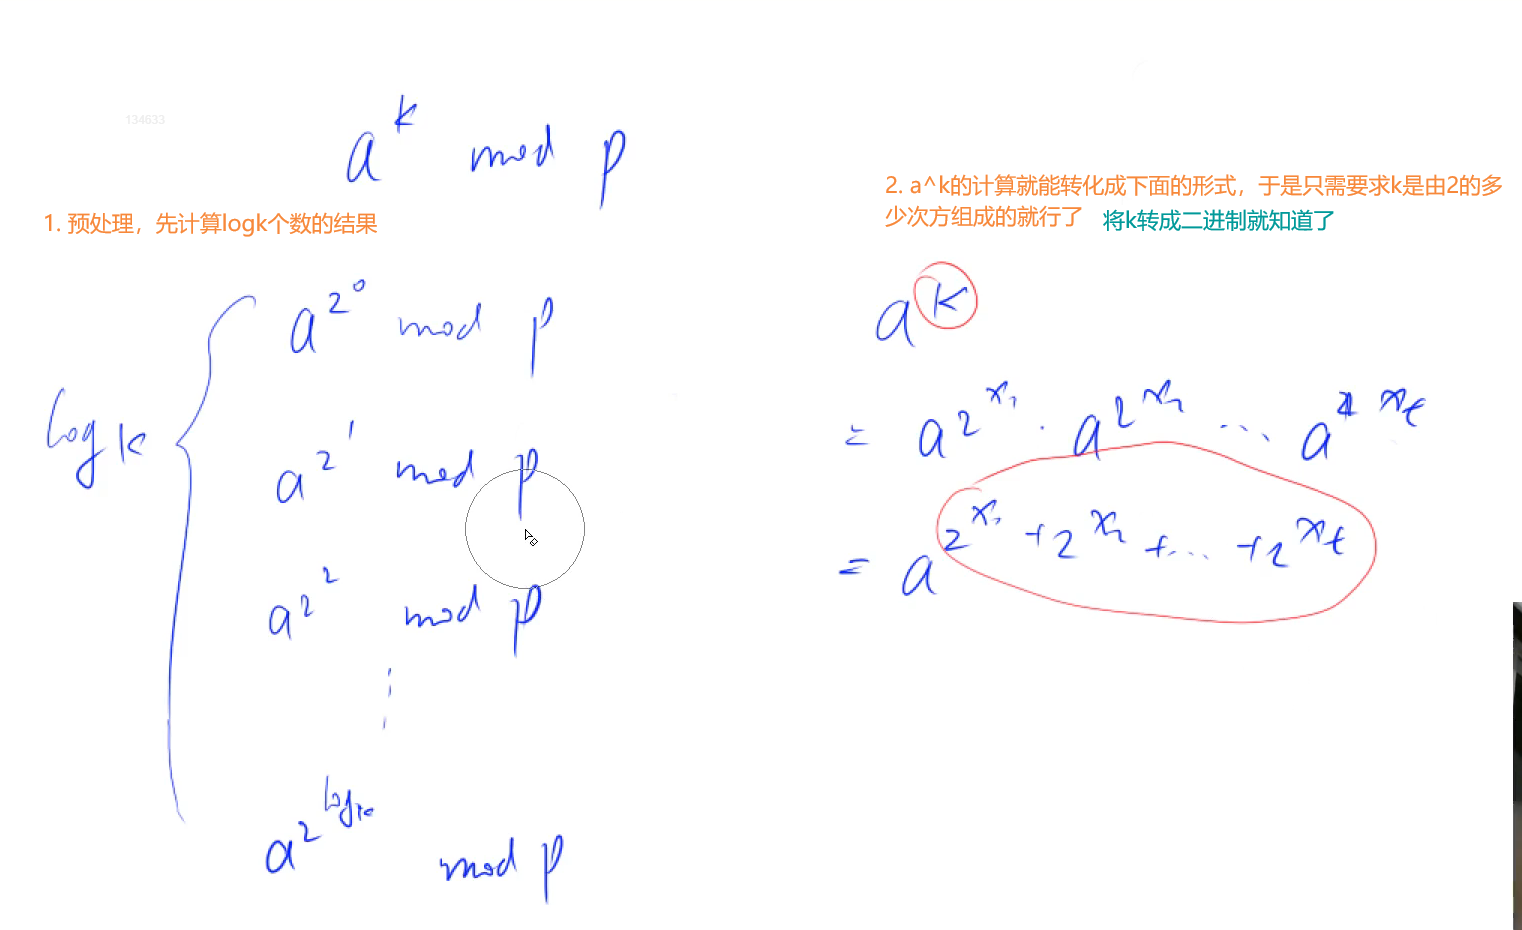 134633
a^k mod p
1. 预处理，先计算logk个数的结果
a^2^0 mod p
log k
a^2^1 mod p
a^2^2 mod p
⋮
a^2^logk mod p
2. a^k的计算就能转化成下面的形式，于是只需要求k是由2的多
少次方组成的就行了 将k转成二进制就知道了
a^k
= a^2^x₁ · a^2^x₂ ... a^2^xt
= a^2^x₁ + 2^x₂ + ... + 2^xt